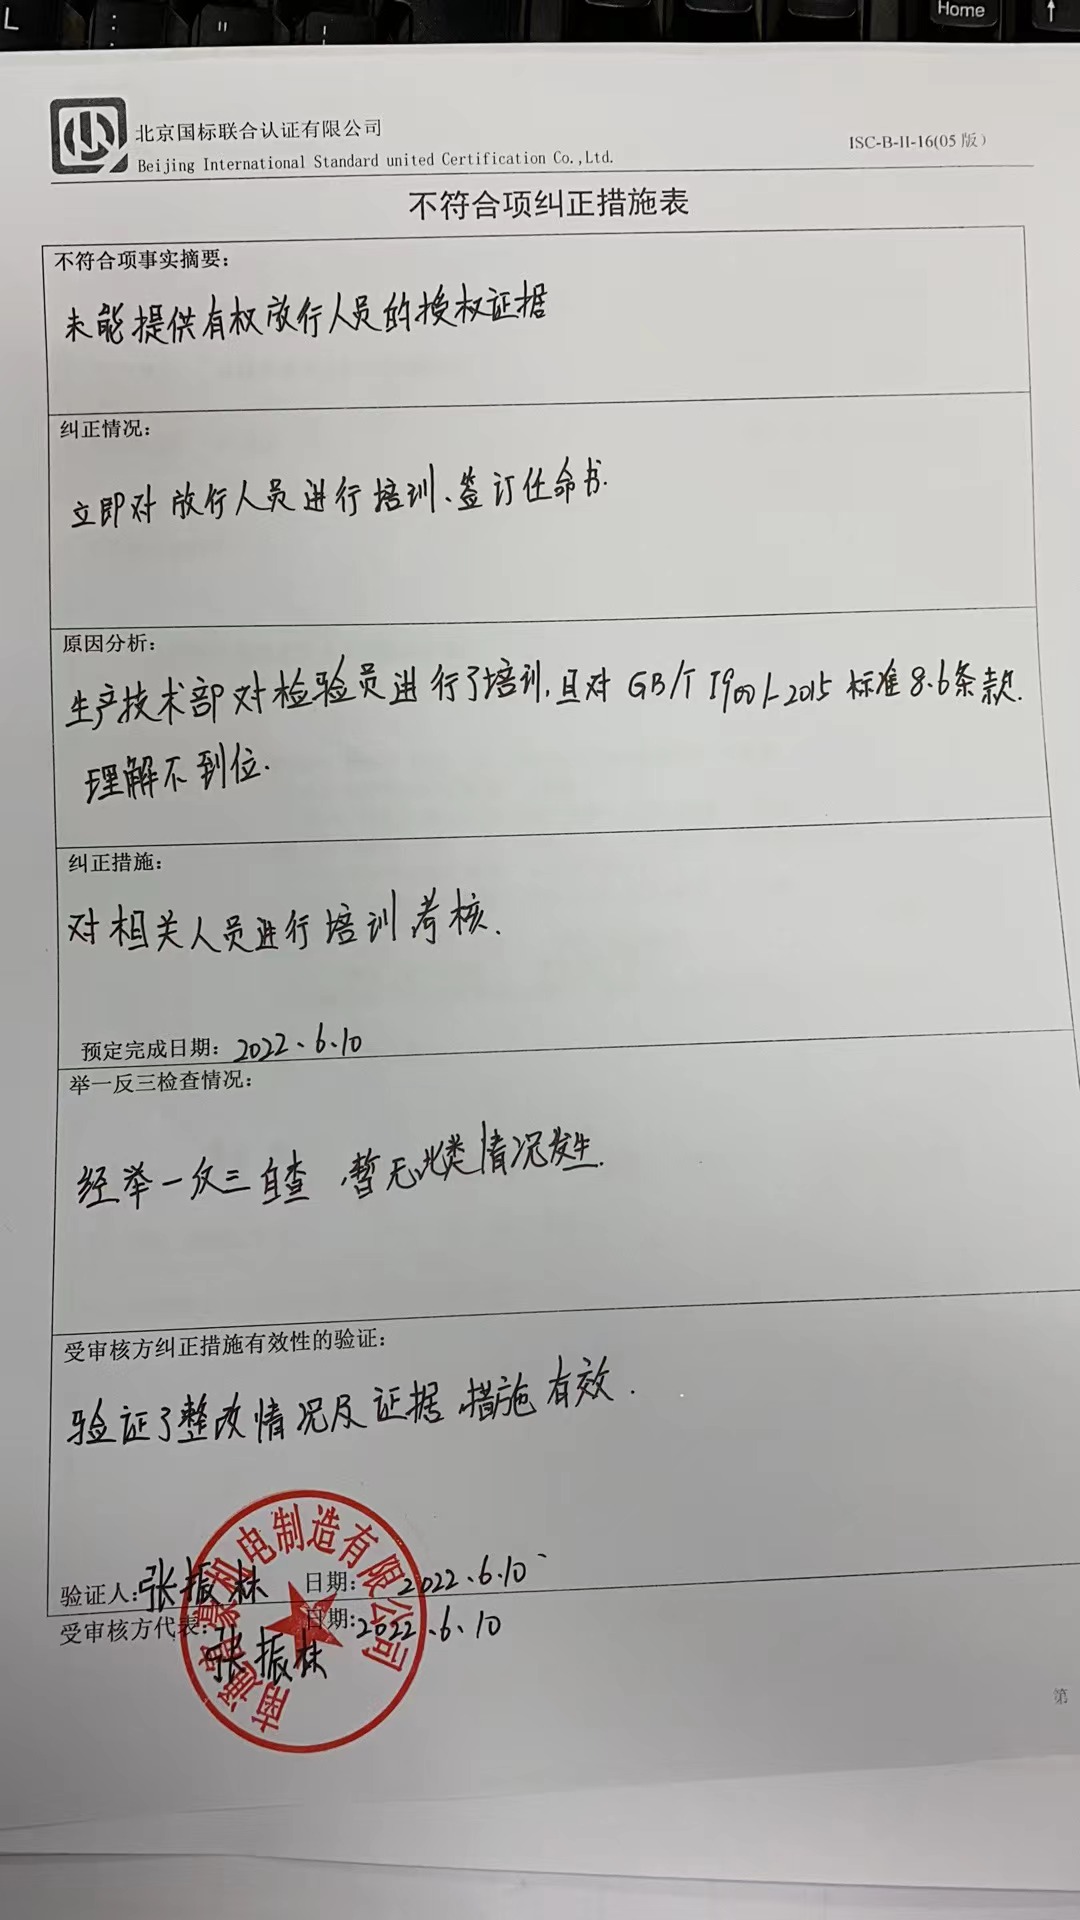 L
Home
北京国标联合认证有限公司
Beijing International Standard united Certification Co.,Ltd.
ISC-B-II-16(05 版)
不符合项纠正措施表
不符合项事实摘要:
未能提供有权放行人员的授权证据
纠正情况:
立即对放行人员进行培训、签订任命书.
原因分析:
生产技术部对检验员进行了培训,且对 GB/T 19001-2015 标准 8.6条款.
理解不到位.
纠正措施:
对相关人员进行培训考核.
预定完成日期: 2022、6.10
举一反三检查情况:
经举一反三自查,暂无此类情况发生.
受审核方纠正措施有效性的验证:
验证了整改情况及证据,措施有效.
验证人:张振林 日期: 2022.6.10
受审核方代表:张振林 日期:2022.6.10
机电制造有限公司
第